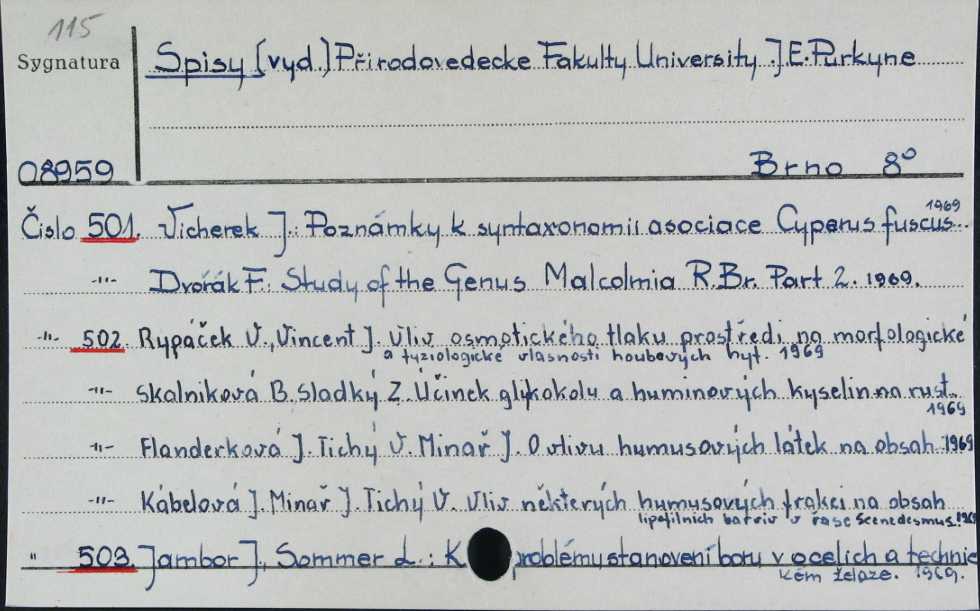 115
Sygnatura
Spisy [vyd.] Přirodovedecke Fakulty University J.E. Purkyne
08959
Brno 8°
Čislo 501. Vicherek J.: Poznámky k syntaxonomii asociace Cyperus fuscus. 1969
-"- Dvořák F. Study of the Genus Malcolmia R.Br. Part 2. 1969.
-"- 502. Rypáček V., Vincent J. Vliv osmotického tlaku prostředi na morfologické
a fyziologické vlasnosti houbových hyf. 1969
-"- Skalniková B. Sladký Z. Účinek glykokolu a huminových kyselin na rust.
1969
-"- Flanderková J. Tichý V. Minař J. O vlivu humusových látek na obsah 1969
-"- Kábelová J. Minař J. Tichý V. Vliv některých humusových frakci na obsah
lipofilnich barviv v řase Scenedesmus. 1969
" 503. Jambor J., Sommer L.: K problému stanoveni boru v ocelich a technic
kém želaze. 1969.